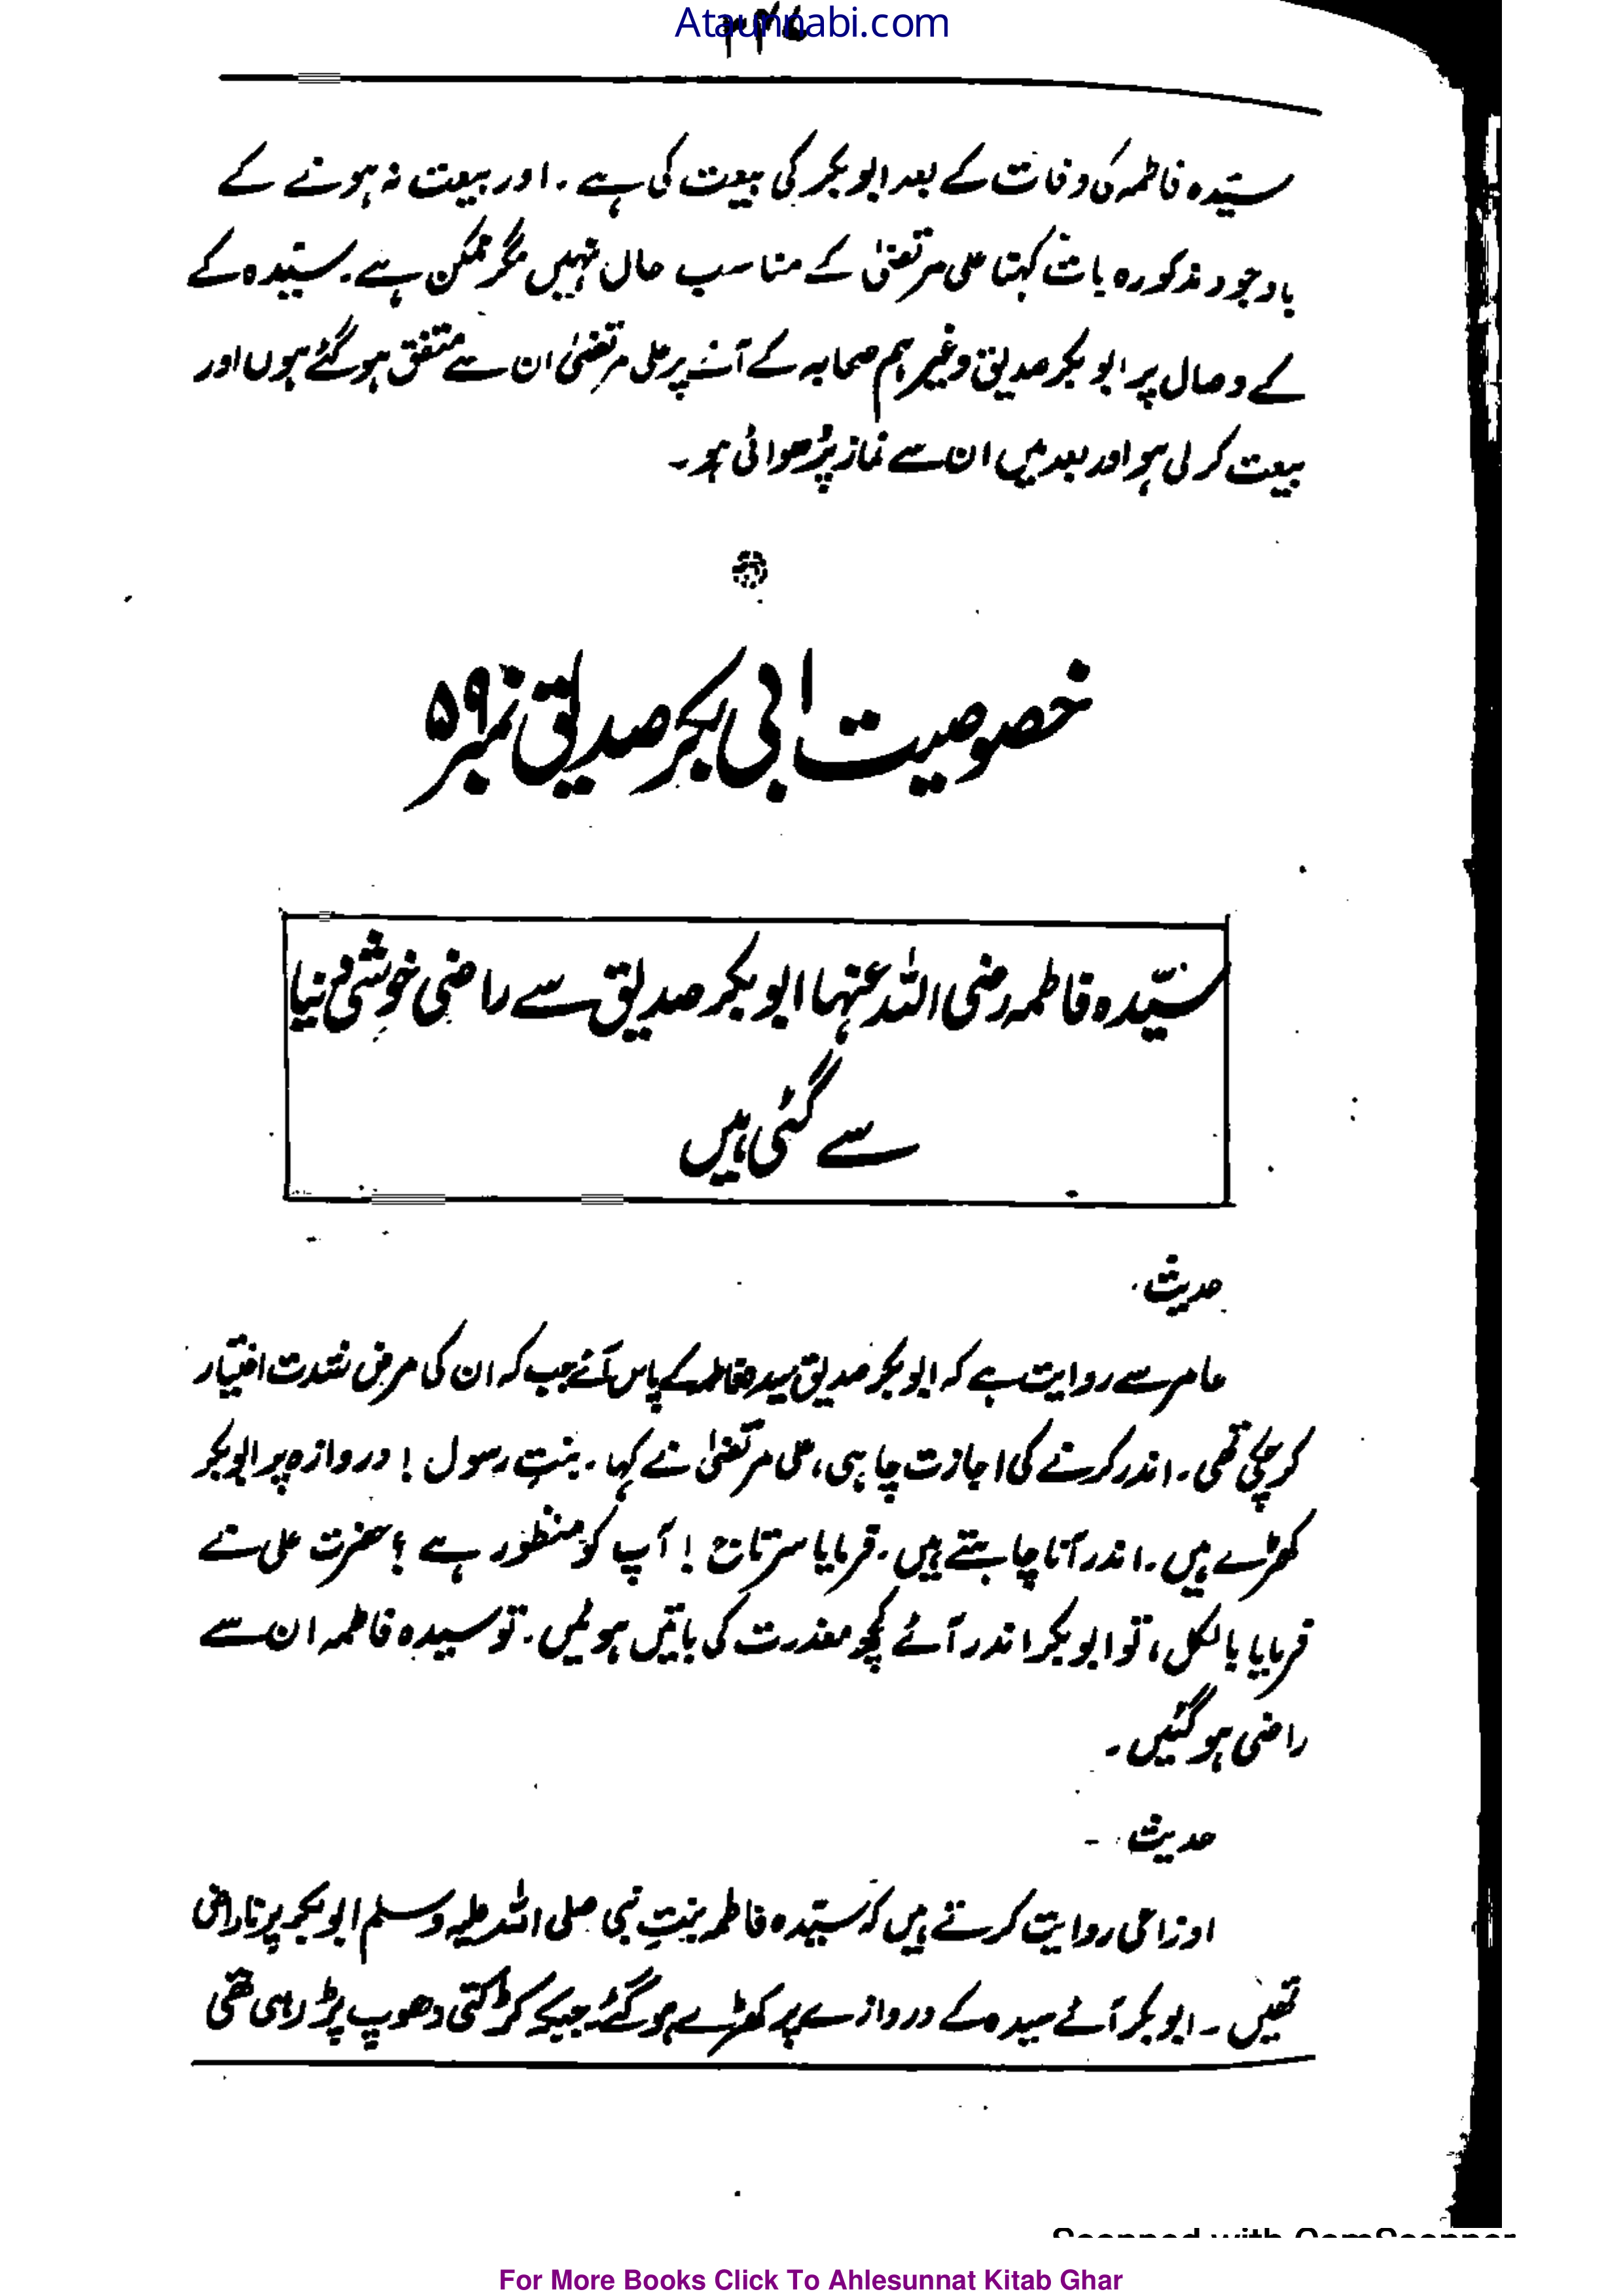 Ataunnabi.com
سیّدہ فاطمہ کی وفات کے بعد ابو بکر کی بیعت کی ہے ۔ اور بیعت نہ ہونے کے
باوجود مذکورہ بات کہنا علی مرتضیٰ کے مناسب حال نہیں مگر ممکن ہے ۔ سیّدہ کے
کے وصال پر ابو بکر صدیق وغیرہم صحابہ کے آنے پر علی مرتضیٰ ان سے متفق ہو گئے ہوں اور
بیعت کر لی ہو اور بعد میں ان سے نماز پڑھوائی ہو ۔
خصوصیت ابی بکر صدیق نمبر ۵۹
سیّدہ فاطمہ رضی اللہ عنہا ابو بکر صدیق سے راضی خوشی دنیا
سے گئی ہیں
حدیث
عامر سے روایت ہے کہ ابو بکر صدیق سیدہ فاطمہ کے پاس آئے جب کہ ان کی مرض شدت اختیار
کر چکی تھی ۔ اندر کرنے کی اجازت چاہی ، علی مرتضیٰ نے کہا ۔ بنتِ رسول ! دروازہ پر ابو بکر
کھڑے ہیں ۔ اندر آنا چاہتے ہیں ۔ فرمایا سرتاج ! آپ کو منظور ہے ؟ حضرت علی نے
فرمایا بالکل ، تو ابو بکر اندر آئے کچھ معذرت کی باتیں ہوئیں ۔ تو سیدہ فاطمہ ان سے
راضی ہو گئیں ۔
حدیث ۔
اوزاعی روایت کرتے ہیں کہ سیّدہ فاطمہ بنتِ نبی صلی اللہ علیہ وسلم ابو بکر پر ناراض
تھیں ۔ ابو بکر آئے سیدہ کے دروازے پر کھڑے ہو گئے جبکہ کڑکتی دھوپ پڑ رہی تھی
Scanned with CamScanner
For More Books Click To Ahlesunnat Kitab Ghar